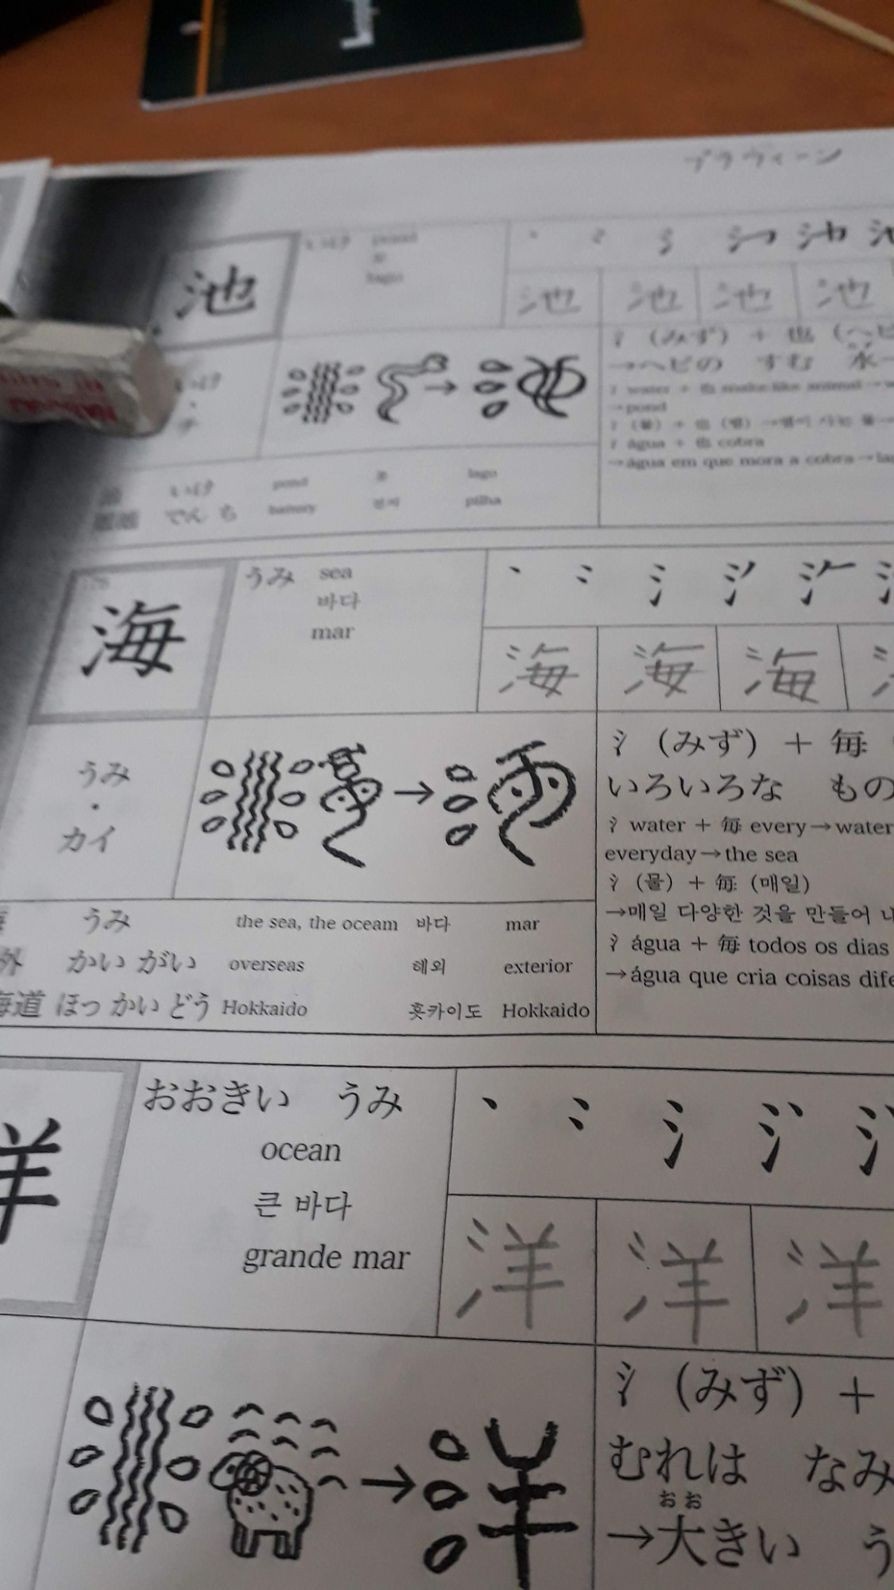 プラヴィーン
池
いけ pond
못
lago
池 池 池 池
氵 (みず) + 也 (ヘビ
→ヘビの すむ 水
氵 water + 也 snake-like animal→
→pond
氵 água + 也 cobra
→água em que mora a cobra→
いけ pond 못 lago
でん ち battery 전지 pilha
海
うみ sea
바다
mar
海 海 海
うみ
・
カイ
氵 (みず) + 毎
いろいろな もの
氵 water + 毎 every→water
everyday→the sea
氵 (물) + 毎 (매일)
→매일 다양한 것을 만들어
氵 água + 毎 todos os dias
→água que cria coisas dife
うみ the sea, the oceam 바다 mar
外 かい がい overseas 해외 exterior
海道 ほっ かい どう Hokkaido 홋카이도 Hokkaido
おおきい うみ
ocean
큰 바다
grande mar
洋 洋 洋
氵 (みず) +
むれは なみ
→大きい う
おお